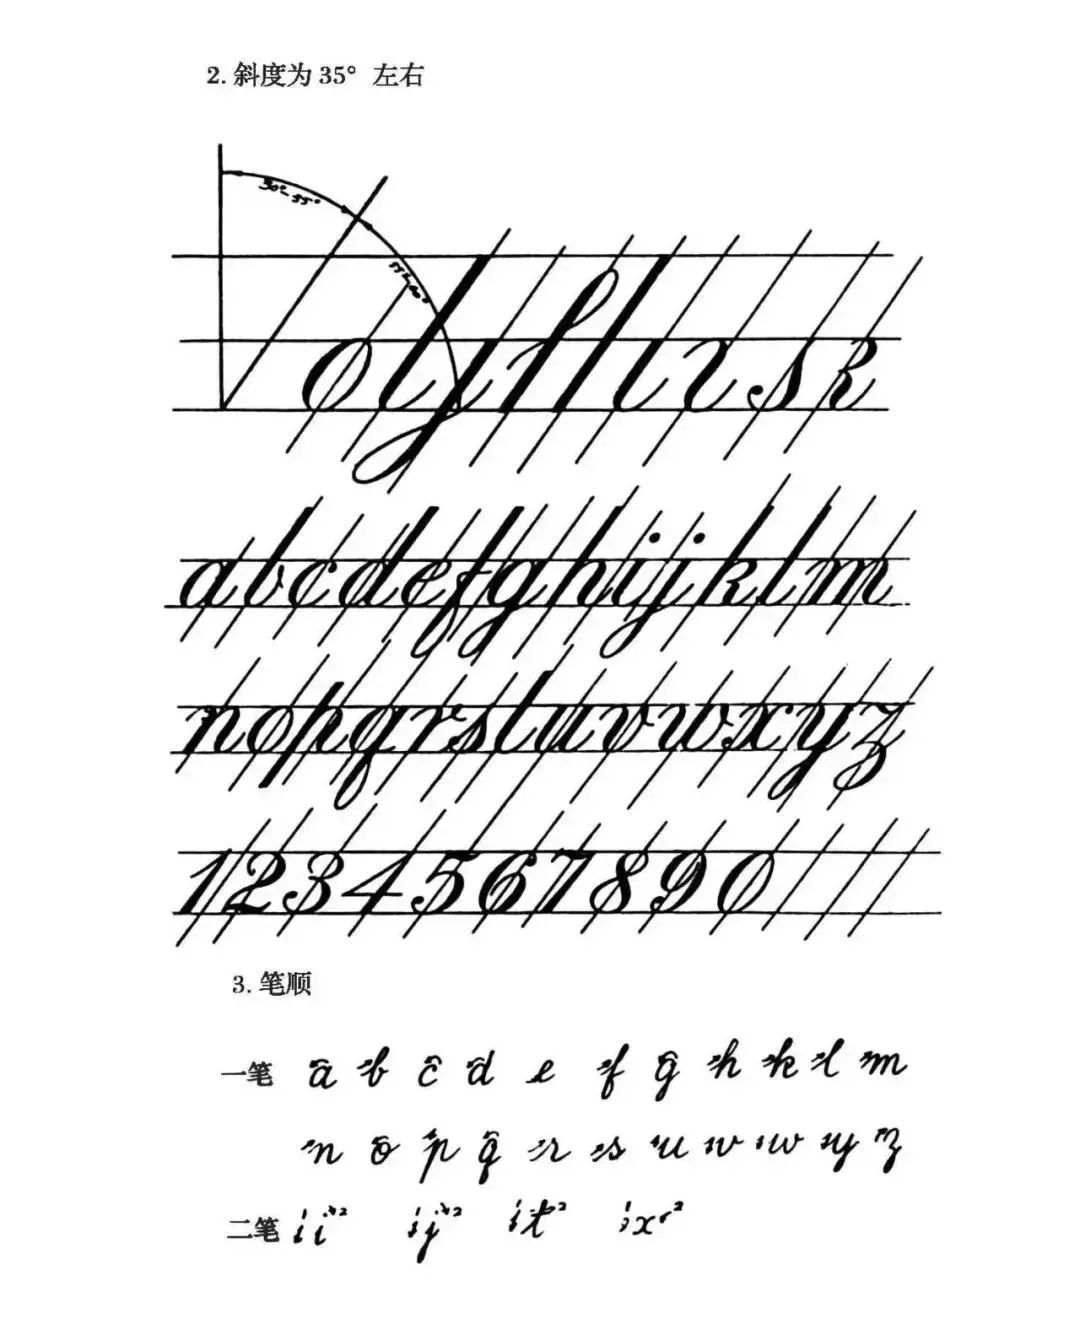 2. 斜度为 35° 左右
30°-35°
olyfflrsk
abcdefghijklm
nopqrstuvwxyz
1234567890
3. 笔顺
一笔 a b c d e f g h k l m
n o p q r s u v w y z
二笔 i j t x